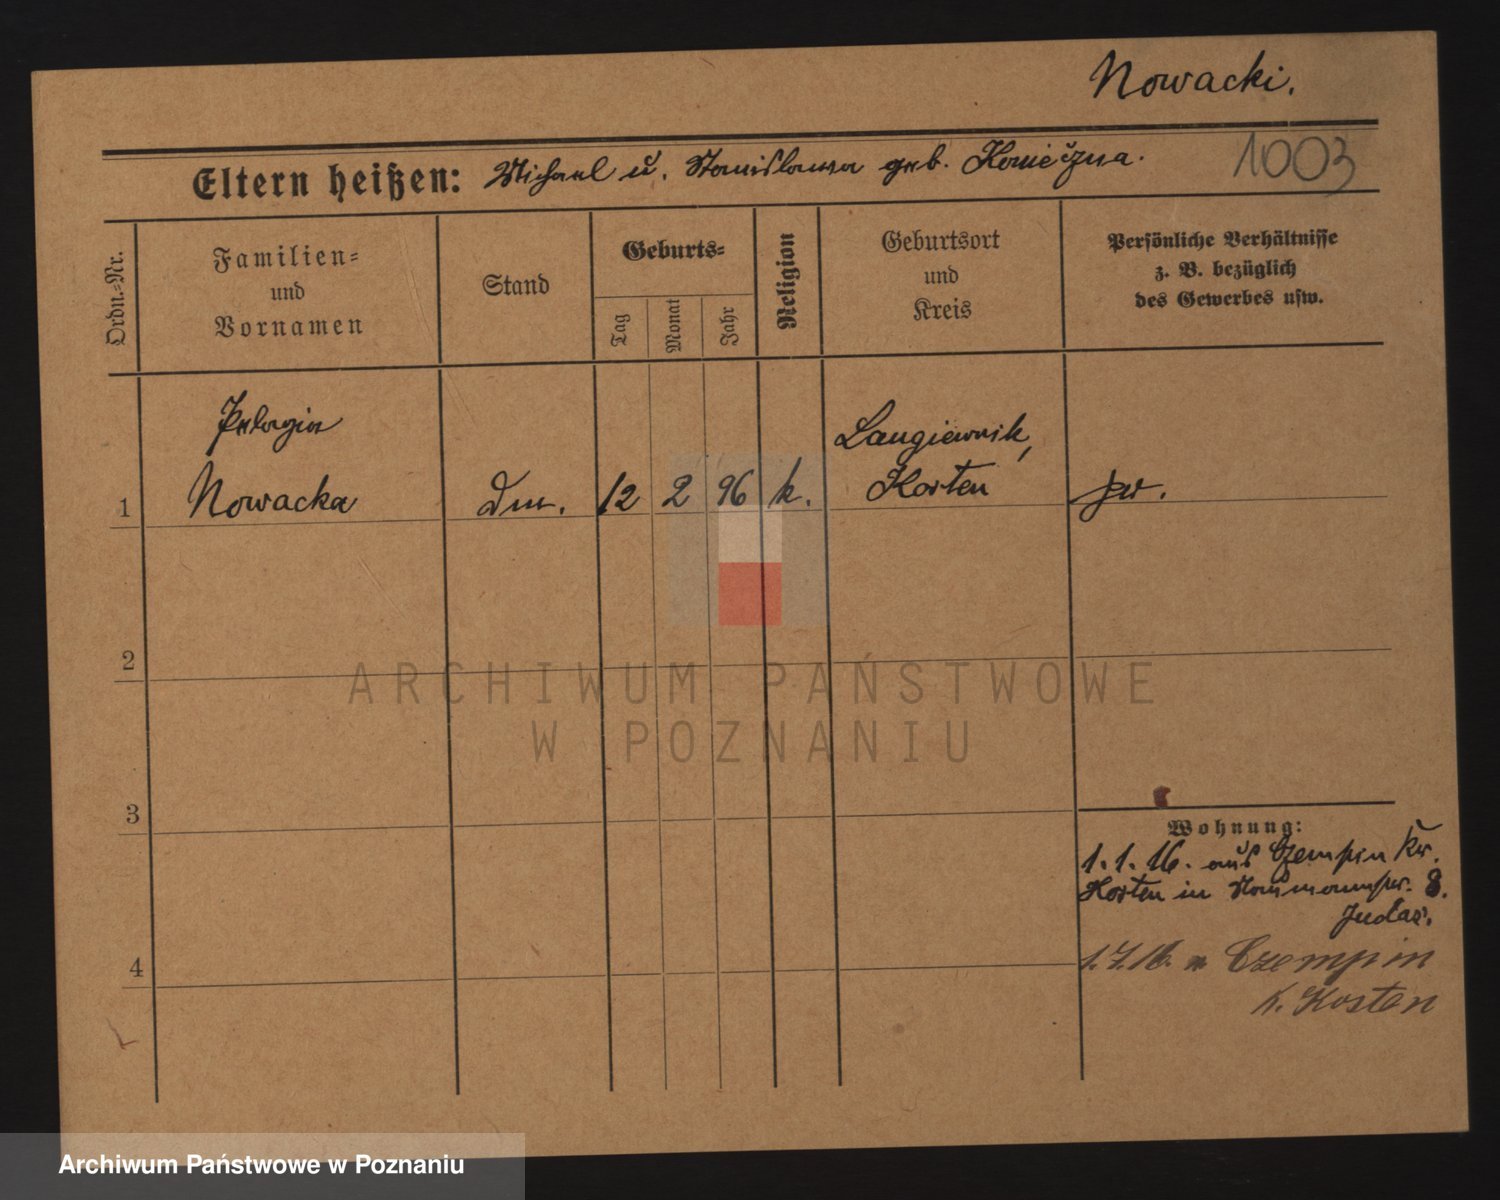 Nowacki.
Eltern heißen: Michael u. Stanislawa geb. Konieczna.
1003
Ordn.-Nr.
Familien-
und
Vornamen
Stand
Geburts-
Tag
Monat
Jahr
Religion
Geburtsort
und
Kreis
Persönliche Verhältnisse
z. B. bezüglich
des Gewerbes usw.
Pelagia
Langiewnik,
1 Nowacka Dm. 12 2 96 k. Kosten pr.
2
ARCHIWUM PAŃSTWOWE
W POZNANIU
3
Wohnung:
1.1.16. aus Czempin Kr.
Kosten in Naumannstr. 8.
4
1.7.16. n Czempin
k. Kosten
Archiwum Państwowe w Poznaniu